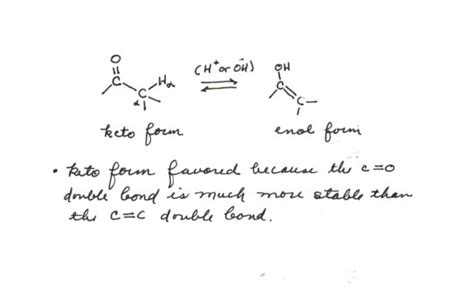 O
C
C
Hα
α
(H⁺ or OH⁻)
OH
C
C
keto form
enol form
• keto form favored because the C=O
double bond is much more stable than
the C=C double bond.